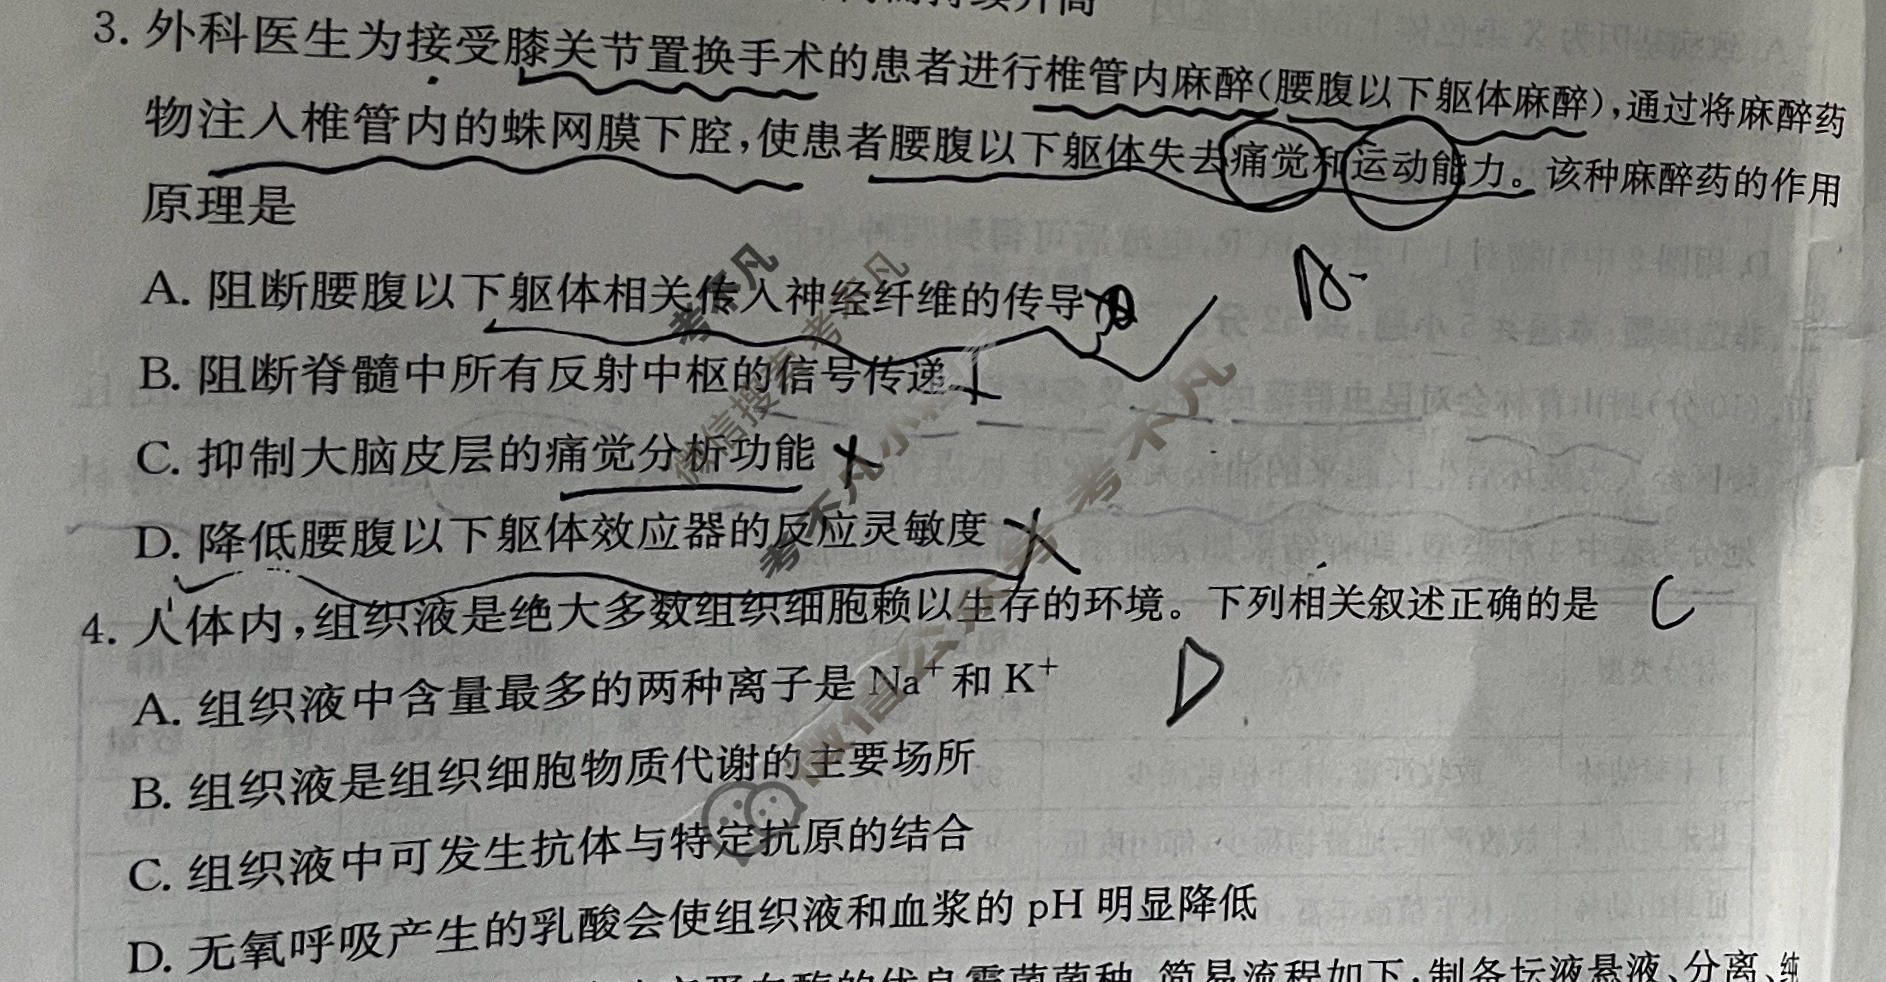 3. 外科医生为接受膝关节置换手术的患者进行椎管内麻醉(腰腹以下躯体麻醉),通过将麻醉药
物注入椎管内的蛛网膜下腔,使患者腰腹以下躯体失去痛觉和运动能力。该种麻醉药的作用
原理是
A. 阻断腰腹以下躯体相关传入神经纤维的传导
B. 阻断脊髓中所有反射中枢的信号传递
C. 抑制大脑皮层的痛觉分析功能
D. 降低腰腹以下躯体效应器的反应灵敏度
4. 人体内,组织液是绝大多数组织细胞赖以生存的环境。下列相关叙述正确的是 C
D
A. 组织液中含量最多的两种离子是 Na⁺和 K⁺
B. 组织液是组织细胞物质代谢的主要场所
C. 组织液中可发生抗体与特定抗原的结合
D. 无氧呼吸产生的乳酸会使组织液和血浆的 pH 明显降低
的优良霉菌菌种,简易流程如下:制备坛液悬液、分离、纯